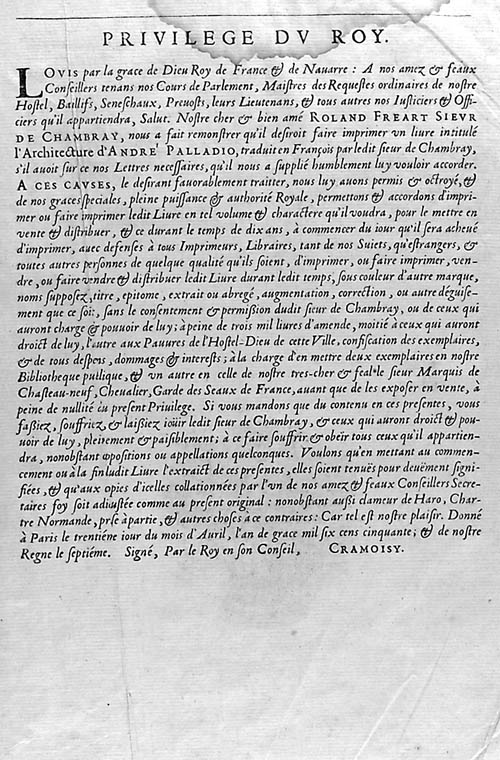 PRIVILEGE DV ROY.
LOVIS par la grace de Dieu Roy de France & de Nauarre : A nos amez & feaux
Conseillers tenans nos Cours de Parlement, Maistres des Requestes ordinaires de nostre
Hostel, Baillifs, Seneschaux, Preuosts, leurs Lieutenans, & tous autres nos Iusticiers & Offi-
ciers qu'il appartiendra, Salut. Nostre cher & bien amé ROLAND FREART SIEVR
DE CHAMBRAY, nous a fait remonstrer qu'il desiroit faire imprimer vn liure intitulé
l'Architecture d'ANDRE' PALLADIO, traduit en François par ledit sieur de Chambray,
s'il auoit sur ce nos Lettres necessaires, qu'il nous a supplié humblement luy vouloir accorder.
A CES CAVSES, le desirant fauorablement traitter, nous luy auons permis & octroyé, &
de nos graces speciales, pleine puissance & authorité Royale, permettons & accordons d'impri-
mer ou faire imprimer ledit Liure en tel volume & charactere qu'il voudra, pour le mettre en
vente & distribuer, & ce durant le temps de dix ans, à commencer du iour qu'il sera acheué
d'imprimer, auec defenses à tous Imprimeurs, Libraires, tant de nos Suiets, qu'estrangers, &
toutes autres personnes de quelque qualité qu'ils soient, d'imprimer, ou faire imprimer, ven-
dre, ou faire vendre & distribuer ledit Liure durant ledit temps, sous couleur d'autre marque,
noms supposez, titre, epitome, extrait ou abregé, augmentation, correction, ou autre déguise-
ment que ce soit, sans le consentement & permission dudit sieur de Chambray, ou de ceux qui
auront charge & pouuoir de luy; à peine de trois mil liures d'amende, moitié à ceux qui auront
droict de luy, l'autre aux Pauures de l'Hostel-Dieu de cette Ville, confiscation des exemplaires,
& de tous despens, dommages & interests; à la charge d'en mettre deux exemplaires en nostre
Bibliotheque publique, & vn autre en celle de nostre tres-cher & feal le sieur Marquis de
Chasteau-neuf, Cheualier, Garde des Seaux de France, auant que de les exposer en vente, à
peine de nullité du present Priuilege. Si vous mandons que du contenu en ces presentes, vous
fassiez, souffriez & laissiez ioüir ledit sieur de Chambray, & ceux qui auront droict & pou-
uoir de luy, pleinement & paisiblement; à ce faire souffrir & obeïr tous ceux qu'il appartien-
dra, nonobstant oppositions ou appellations quelconques. Voulons qu'en mettant au commen-
cement ou à la fin dudit Liure l'extraict de ces presentes, elles soient tenuës pour deuëment signi-
fiées, & qu'aux copies d'icelles collationnées par l'vn de nos amez & feaux Conseillers Secre-
taires foy soit adiustée comme au present original : nonobstant aussi clameur de Haro, Char-
tre Normande, prise à partie, & autres choses à ce contraires : Car tel est nostre plaisir. Donné
à Paris le trentiéme iour du mois d'Auril, l'an de grace mil six cens cinquante; & de nostre
Regne le septiéme. Signé, Par le Roy en son Conseil, CRAMOISY.